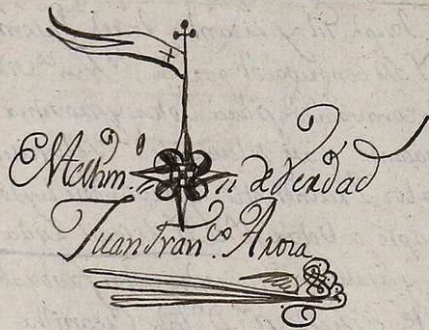 En testim.º de Verdad
Juan Fran.co